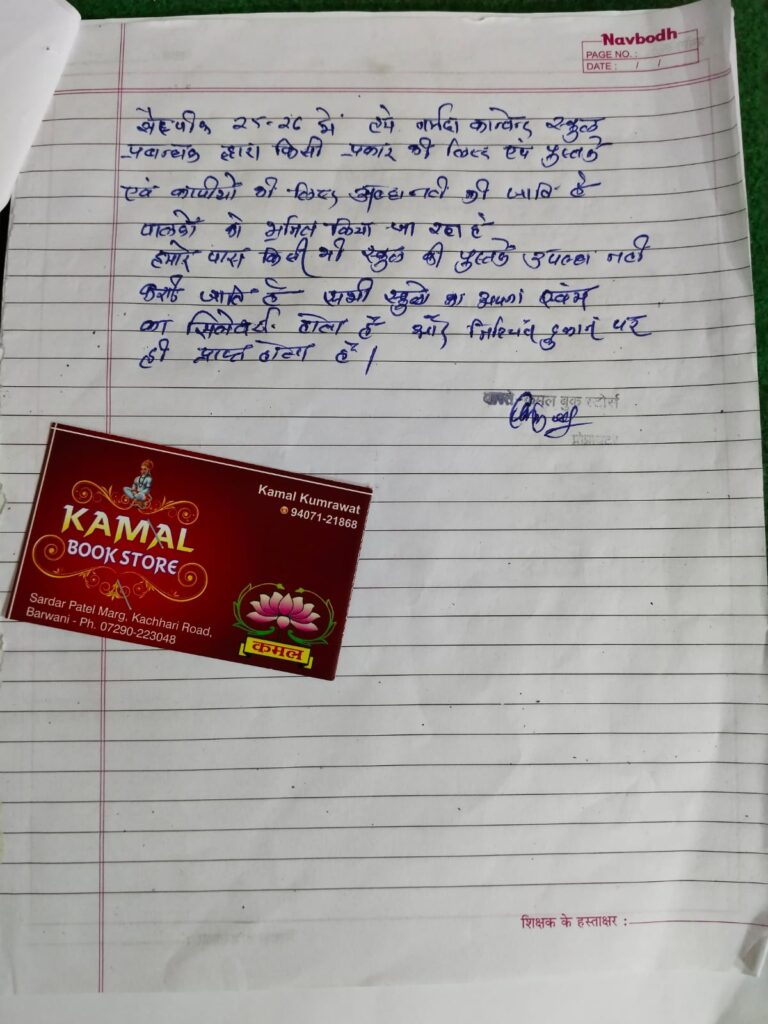 Navbodh
PAGE NO. :
DATE : / /
२५-२६ में हमे नर्मदा कान्वेन्ट स्कुल
प्रबन्धक द्वारा किसी प्रकार की लिस्ट एवं पुस्तके
एवं कापीयो की लिस्ट की जाति है
पालको को भ्रमित किया जा रहा है
हमारे पास किसी भी स्कुल की पुस्तके नही
जाति है सभी स्कुलो का अपना स्वंम
का होता है और दुकान पर
ही प्राप्त होता है।
वास्ते कमल बुक स्टोर्स
प्रोप्रायटर
KAMAL
BOOK STORE
Kamal Kumrawat
94071-21868
Sardar Patel Marg, Kachhari Road,
Barwani - Ph. 07290-223048
कमल
शिक्षक के हस्ताक्षर :